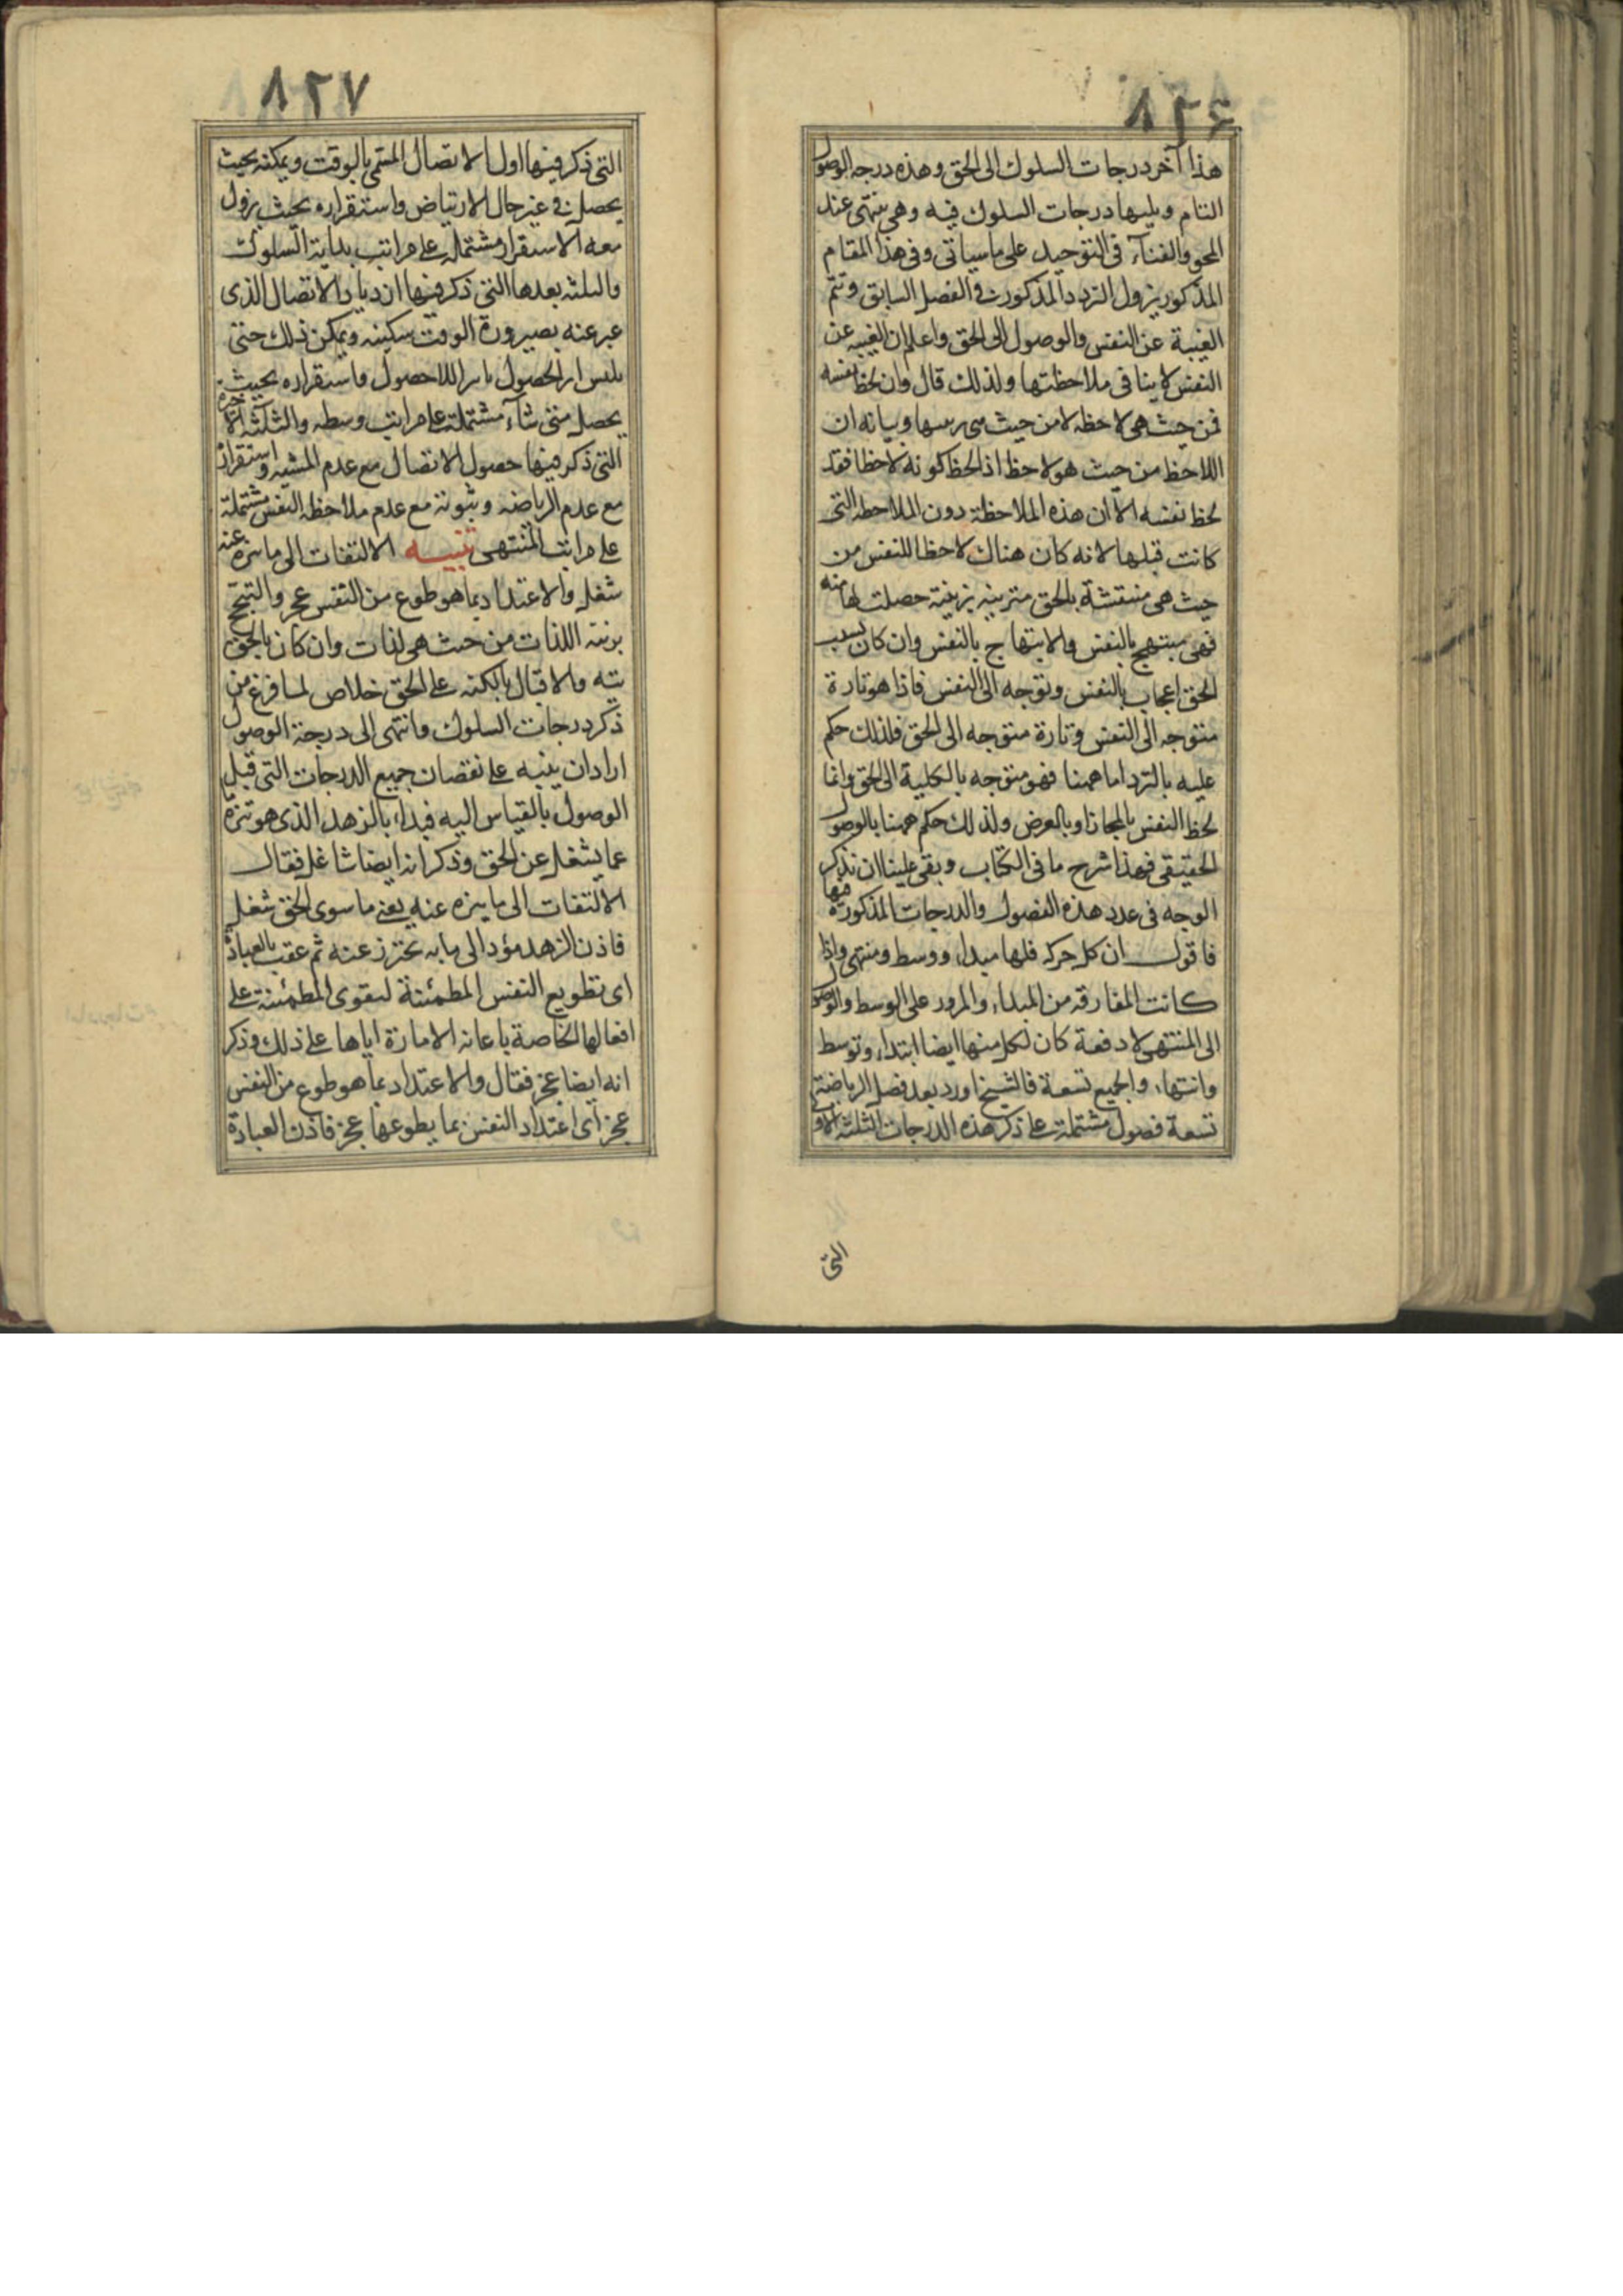 ٨٢٦
هذا آخر درجات السلوك الى الحق وهذه درجه الوصول
التام ويليها درجات السلوك فيه وهى ينتهى عند
المحو والفناء فى التوحيد على ما سياتى وفى هذا المقام
المذكور يزول التردد المذكور فى الفصل السابق وتتم
الغيبة عن النفس والوصول الى الحق واعلم ان الغيبه عن
النفس لا ينافى ملاحظتها ولذلك قال وان لحظ نفسه
فمن حيث هى لاحظه لا من حيث هى بزينتها وبيانه ان
اللاحظ من حيث هو لاحظ اذا لحظ كونه لاحظا فقد
لحظ نفسه الا ان هذه الملاحظة دون الملاحظه التى
كانت قبلها لانه كان هناك لاحظا للنفس من
حيث هى منتقشة بالحق متزينه بزينة حصلت لها منه
فهى مبتهج بالنفس والابتهاج بالنفس وان كان بسبب
الحق اعجاب بالنفس وتوجه الى النفس فاذا هو تارة
متوجه الى النفس وتارة متوجه الى الحق فلذلك حكم
عليه بالتردد اما ههنا فهو متوجه بالكلية الى الحق وانما
لحظ النفس بالمجاز او بالعرض ولذلك حكم ههنا بالوصول
الحقيقى فهذا شرح ما فى الكتاب وبقى علينا ان نذكر
الوجه فى عدد هذه الفصول والدرجات المذكورة فيها
فاقول ان كل حركه فلها مبدا ووسط ومنتهى واذا
كانت المفارقه من المبداء والمرور على الوسط والوصول
الى المنتهى لا دفعة كان لكل منها ايضا ابتداء وتوسط
وانتهاء والجميع تسعة فالشيخ اورد بعد فصل الرياضة
تسعة فصول مشتملة على ذكر هذه الدرجات الثلثه الاولى
التى
٨٢٧
التى ذكر فيها اول الاتصال المسمى بالوقت ويمكنه بحيث
يحصل فى غير حال الارتياض واستقراره بحيث يزول
معه الاستقرار مشتمله على مراتب بداية السلوك
والثلثه بعدها التى ذكر فيها ازدياد الاتصال الذى
عبر عنه بصيرورة الوقت سكينه ويمكن ذلك حتى
يلبس اثر الحصول باثر اللاحصول واستقراره بحيث
يحصل متى شاء مشتملة على مراتب وسطه والثلثه الاخيرة
التى ذكر فيها حصول الاتصال مع عدم المشيه واستقراره
مع عدم الرياضه وثبوته مع عدم ملاحظه النفس مشتملة
على مراتب المنتهى تنبيه الالتفات الى ما تنزه عنه
شغل والاعتداد بما هو طوع من النفس عجز والتبجح
بزينة اللذات من حيث هى لذات وان كان بالحق
تيه والاقبال بالكليه على الحق خلاص لما فرغ من
ذكر درجات السلوك وانتهى الى درجة الوصول
اراد ان ينبه على نقصان جميع الدرجات التى قبل
الوصول بالقياس اليه فبداء بالزهد الذى هو تنزه
عما يشغل عن الحق وذكر انه ايضا شاغل فقال
الالتفات الى ما ينزه عنه يعنى ما سوى الحق شغل
فاذن الزهد مؤد الى ما به يحترز عنه ثم عقب بالعبادة
اى تطويع النفس المطمئنة لتقوى المطمئنة على
افعالها الخاصة باعانه الامارة اياها على ذلك وذكر
انه ايضا عجز فقال والاعتداد بما هو طوع من النفس
عجز اى اعتداد النفس بما يطوعها عجز فاذن العبادة